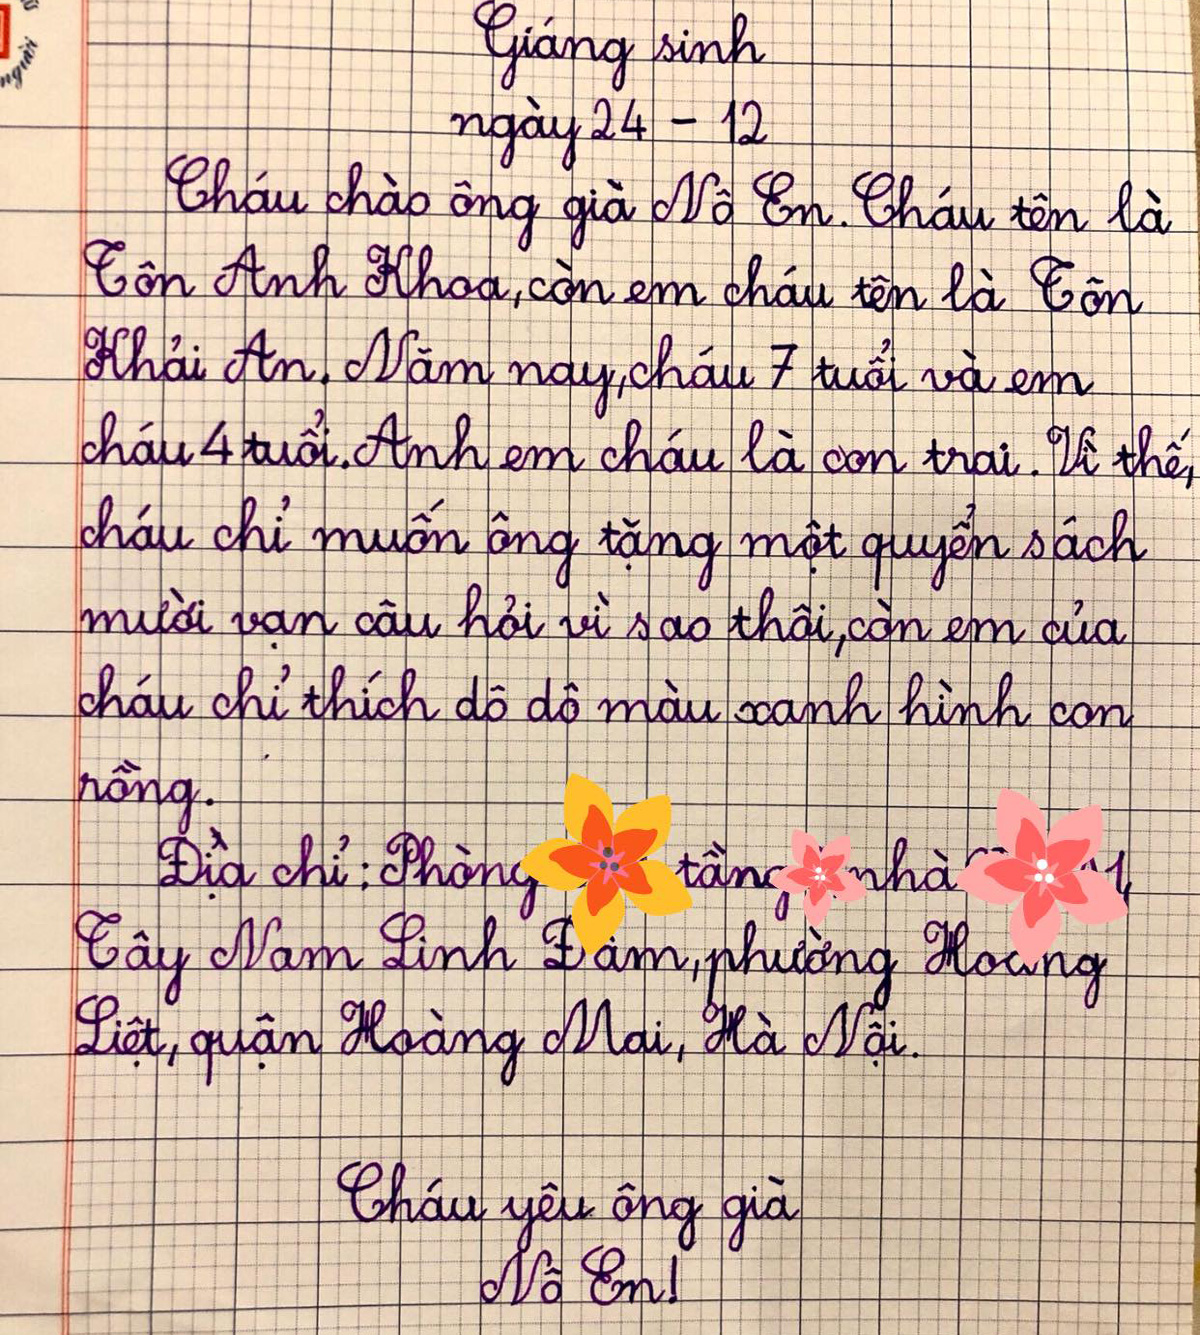 Giáng sinh
ngày 24 - 12
Cháu chào ông già Nô En. Cháu tên là
Tôn Anh Khoa, còn em cháu tên là Tôn
Khải An. Năm nay, cháu 7 tuổi và em
cháu 4 tuổi. Anh em cháu là con trai. Vì thế,
cháu chỉ muốn ông tặng một quyển sách
mười vạn câu hỏi vì sao thôi, còn em của
cháu chỉ thích dô dô màu xanh hình con
rồng.
Địa chỉ: Phòng tầng nhà
Tây Nam Linh Đàm, phường Hoàng
Liệt, quận Hoàng Mai, Hà Nội.
Cháu yêu ông già
Nô En!